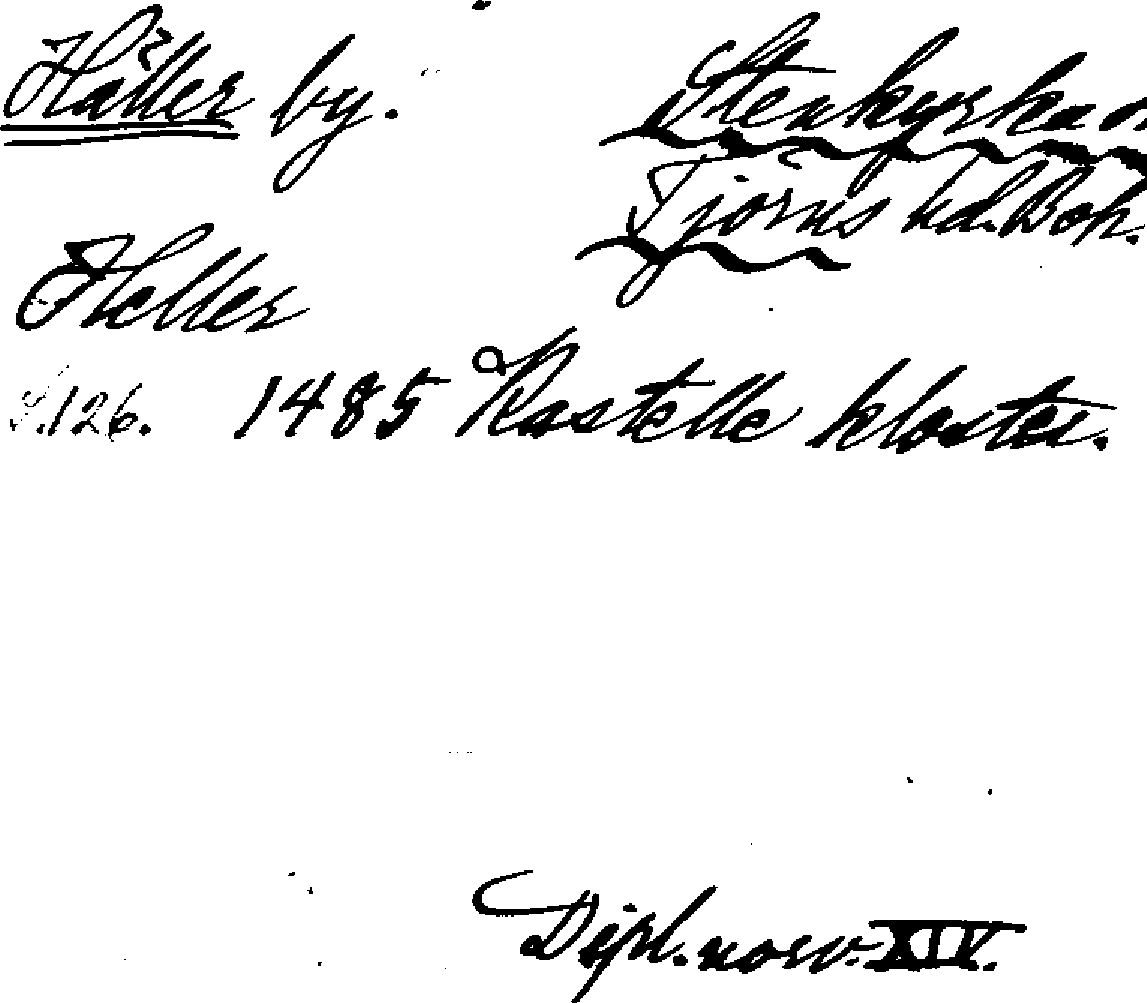 Häller by.
Stenkyrka
Tjörns hd. Boh.
Heller
S.126. 1485 Kastelle kloster.
Dipl. norv. XIV.